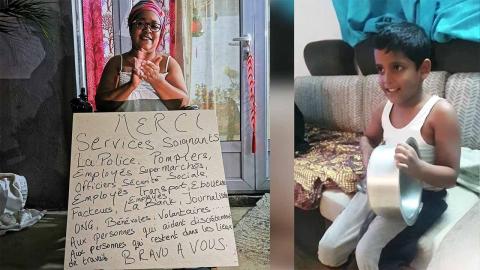 MERCI
Services Soignants
La Police, Pompiers,
Employés Supermarchés,
Officiers Sécurité Sociale,
Employés Transport, Eboueurs
Facteurs, La Bank, Journaliste
Employés
ONG, Bénévoles, Volontaires...
Aux personnes qui aident discrètement
Aux personnes qui restent dans les lieux
de travail. BRAVO A VOUS.